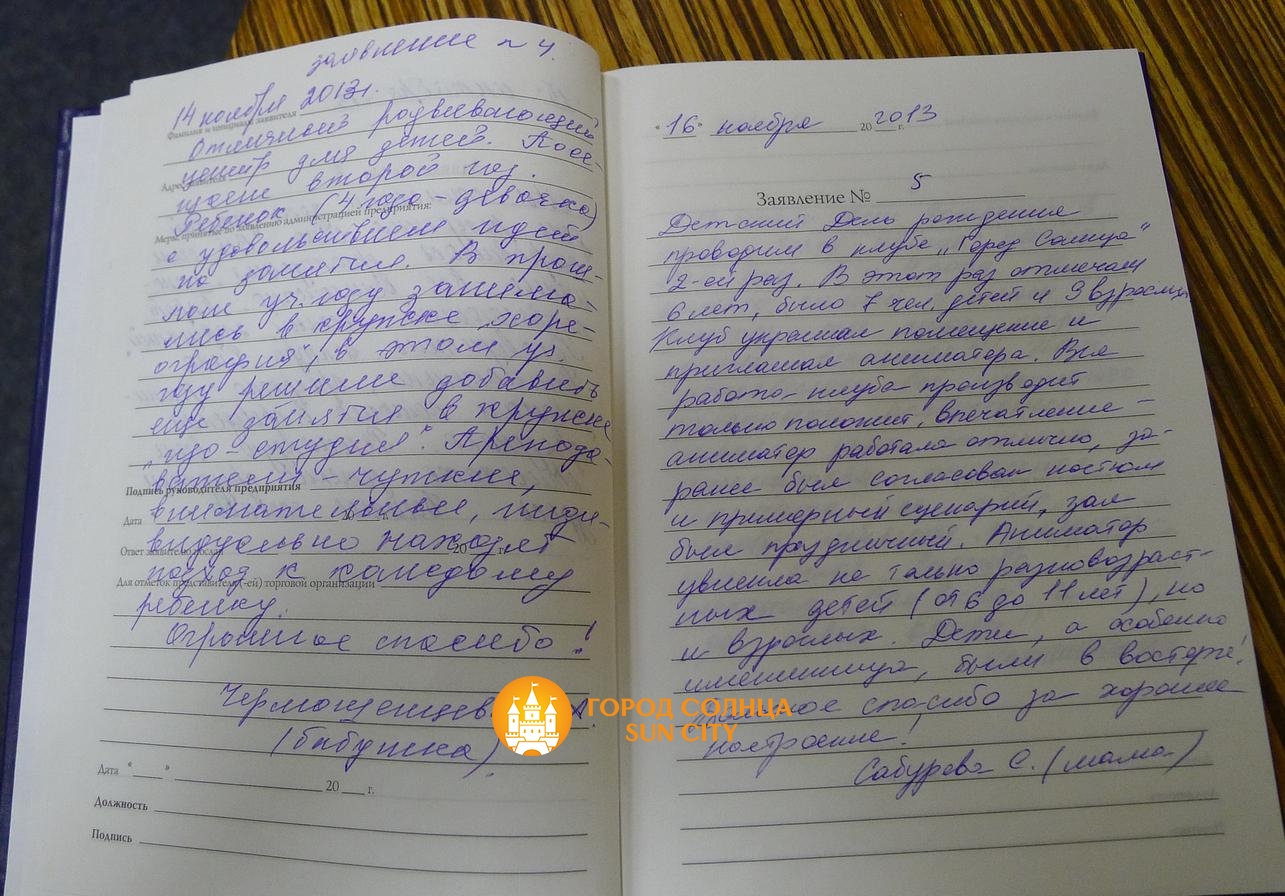 заявление № 4.
14 ноября 2013г.
Фамилия и инициалы заявителя
Отличный развивающий
центр для детей. Посе-
Адрес заявителя
щаем второй год.
Ребенок (4 года - девочка)
Меры, принятые по заявлению администрацией предприятия:
с удовольствием идет
на занятия. В прош-
лом уч. году занима-
лись в кружке „хоре-
ография", в этом уч.
году решили добавить
еще занятия в кружке
„изо-студия". Препода-
ватели - чуткие,
Подпись руководителя предприятия
внимательные, инди-
Дата 20 г.
видуально находят
Ответ заявителю послан 20 г.
подход к каждому
Для отметок представителя (-ей) торговой организации
ребенку.
Огромное спасибо!
(бабушка)
Дата "___" 20 ___ г.
Должность
Подпись
"16" ноября 20 2013 г.
Заявление № 5
Детский День рождения
проводим в клубе „Город Солнца"
2-ой раз. В этот раз отмечали
6 лет, было 7 чел. детей и 9 взрослых.
Клуб украшал помещение и
приглашал аниматора. Вся
работа клуба производит
только положит. впечатление -
аниматор работала отлично, за-
ранее был согласован костюм
и примерный сценарий, зал
был праздничный. Аниматор
увлекла не только разновозраст-
ных детей (от 6 до 11 лет), но
и взрослых. Дети, а особенно
именинница, были в восторге!
Огромное спасибо за хорошее
настроение!
Сабурова С. (мама)
ГОРОД СОЛНЦА
SUN CITY